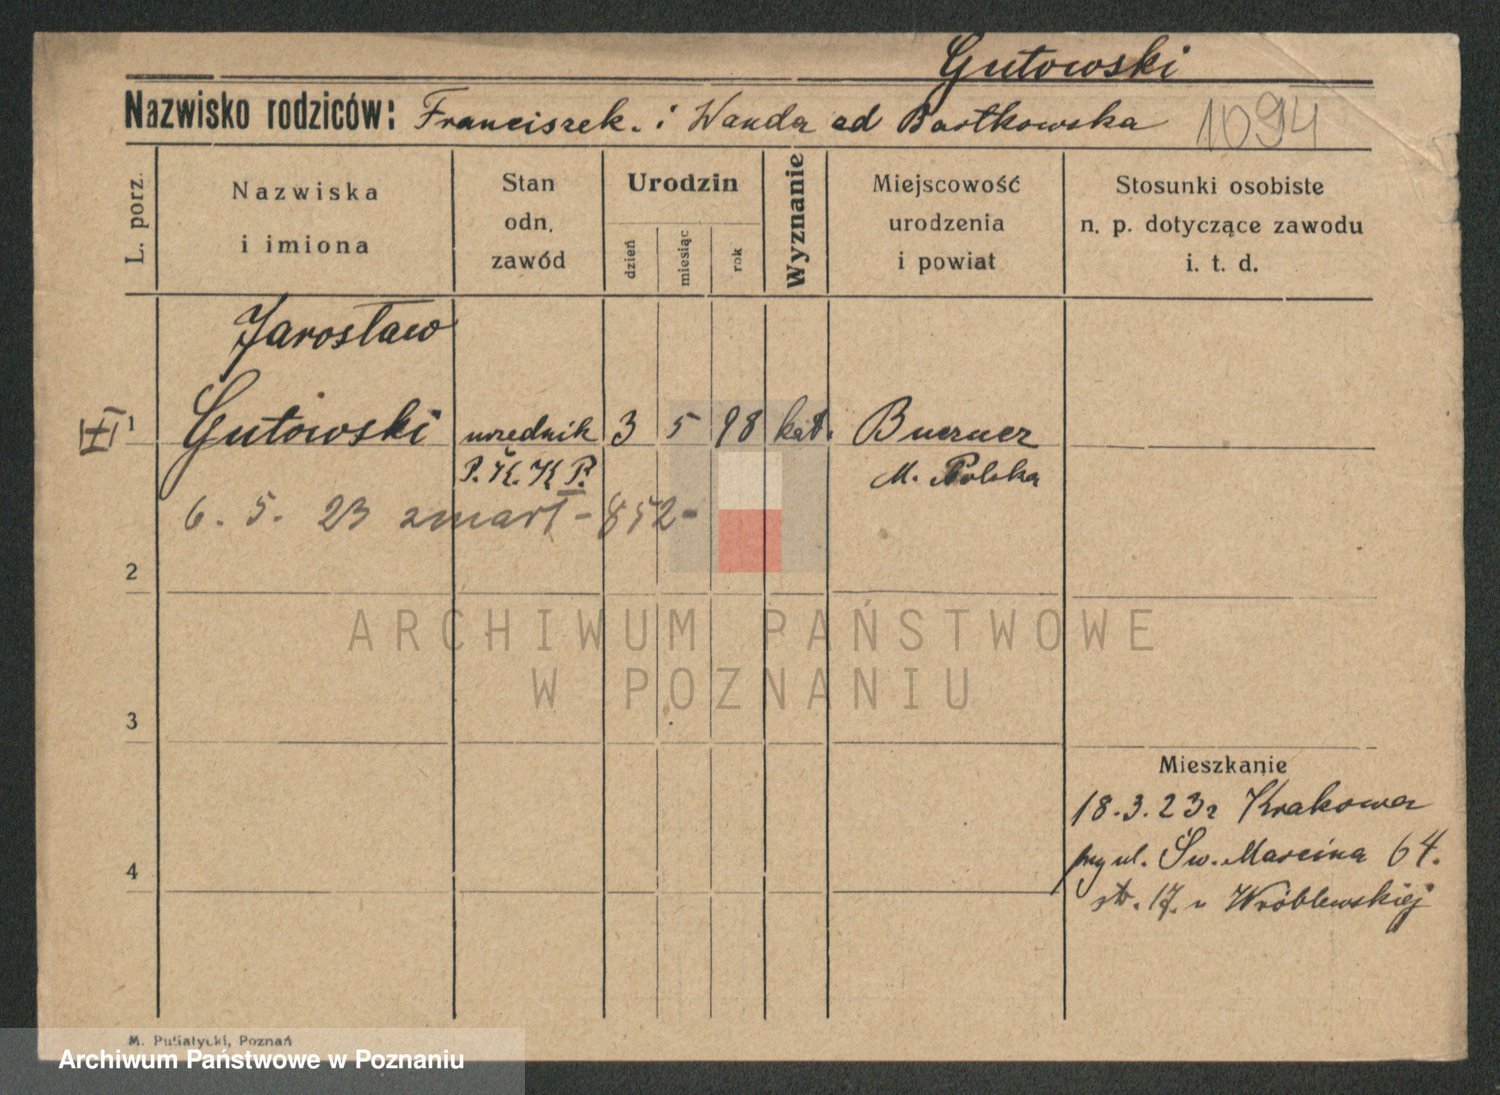 Gutowski
Nazwisko rodziców: Franciszek. i Wanda od Bartkowska
1094
L. porz.
Nazwiska i imiona
Stan odn. zawód
Urodzin
dzień
miesiąc
rok
Wyznanie
Miejscowość urodzenia i powiat
Stosunki osobiste n. p. dotyczące zawodu i. t. d.
Jarosław
1 Gutowski urzędnik 3 5 98 kat.
P. K. K. P. M. Polska
6. 5. 23 zmarł - 852-
2
3
4
ARCHIWUM PAŃSTWOWE
W POZNANIU
Mieszkanie
18.3.23r Krakowa
przy ul. Św. Marcina 64.
17. u Wróblewskiej
M. Putiatycki, Poznań
Archiwum Państwowe w Poznaniu